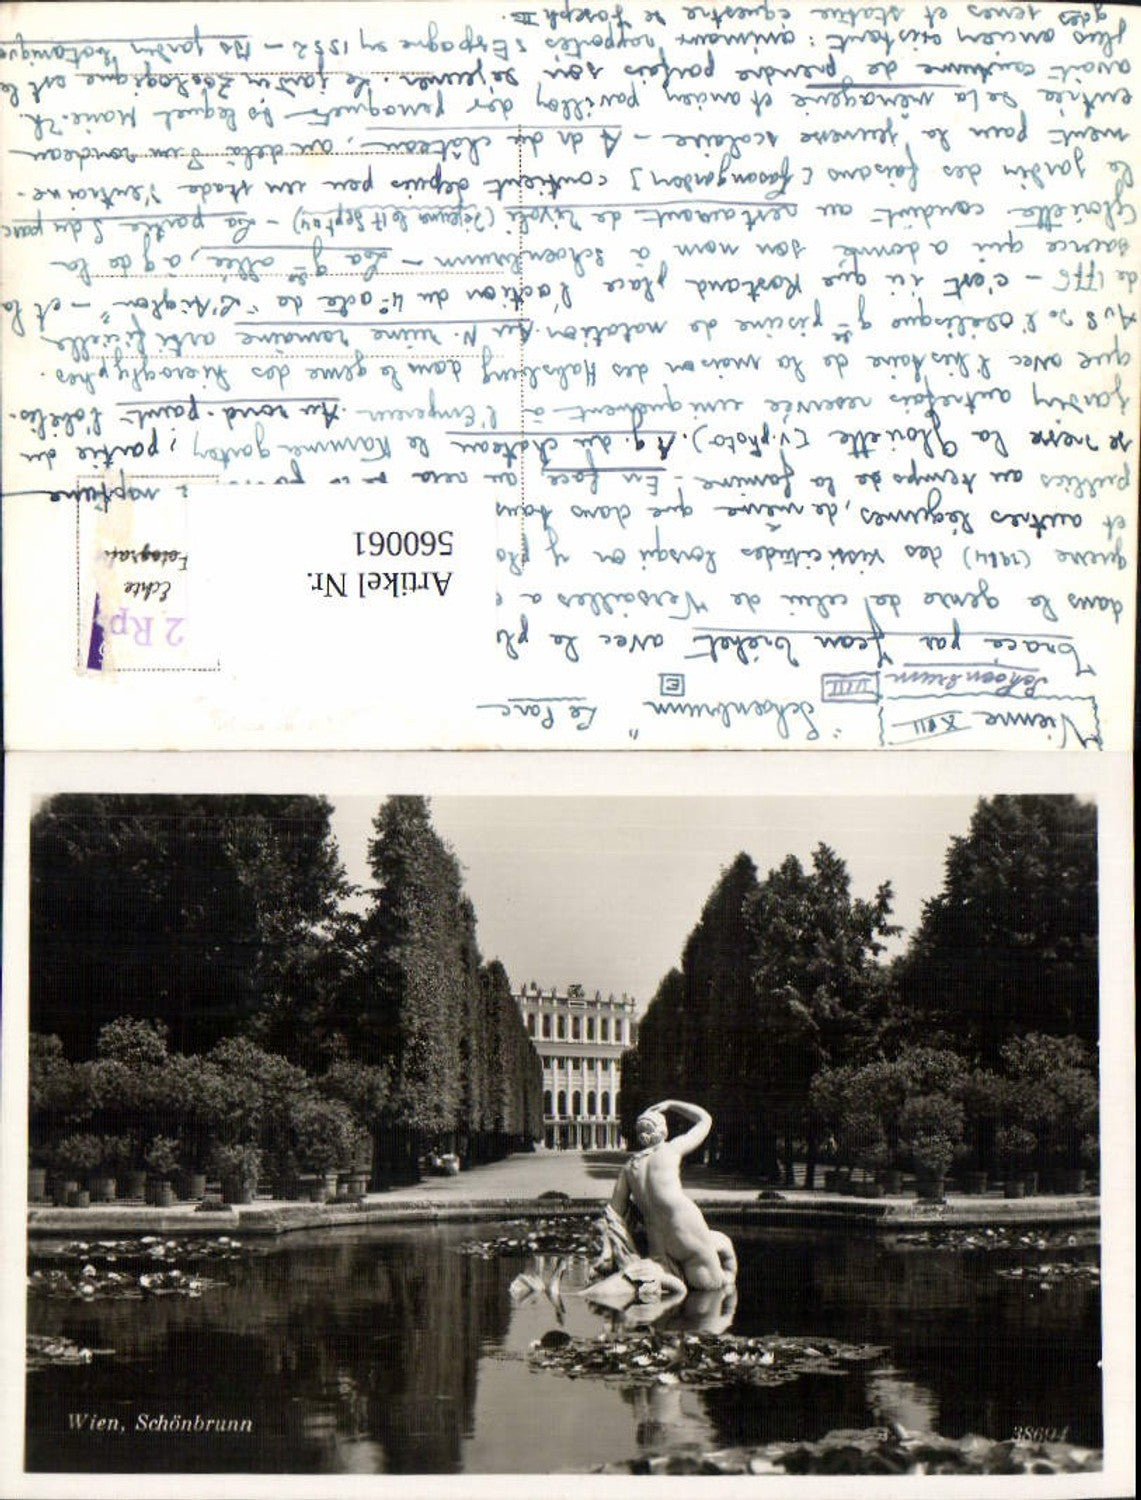 Vienne XVIII
Schoenbrunn
VIII
"Schoenbrunn" E Le Parc
Tracé par Jean Tréhet avec le
dans le genre de celui de Versailles a
guerre (1914) des vicissitudes lorsqu'on y
et autres légumes, de même que dans
publics au temps de la famine - En face, au
se dresse la Gloriette (v. photo). A g. du château le Kammergarten, partie du
jardin autrefois réservée uniquement à l'Empereur. Au rond-point l'obélis-
que avec l'histoire de la maison des Habsburg dans le genre des hiéroglyphes.
A de l'Obélisque gde piscine de natation. Au N. ruine romaine artificielle
de 1776 - c'est ici que Rostand place l'action du 4° acte de "L'Aiglon" - et la
source qui a donné son nom à Schoenbrunn - La gde allée, à g de la
Gloriette conduit au restaurant de Tivoli (Déjeuner le 17 Sept 04) - La partie S du parc
le jardin des faisans (Fasangarten) contient depuis peu un stade d'entraine-
ment pour la jeunesse scolaire - A dr du château, au delà d'un rondeau
entrée de la ménagerie et ancien pavillon des perroquets ds lequel Marie-Th.
avait coutume de prendre parfois son déjeuner. Le jardin zoologique est le
plus ancien existant: animaux rapportés d'Espagne en 1552 - Ds jardin botanique
gdes serres et statue équestre de Joseph II.
Artikel Nr.
560061
2 Rp
Echte
Fotografie
Wien, Schönbrunn
38694